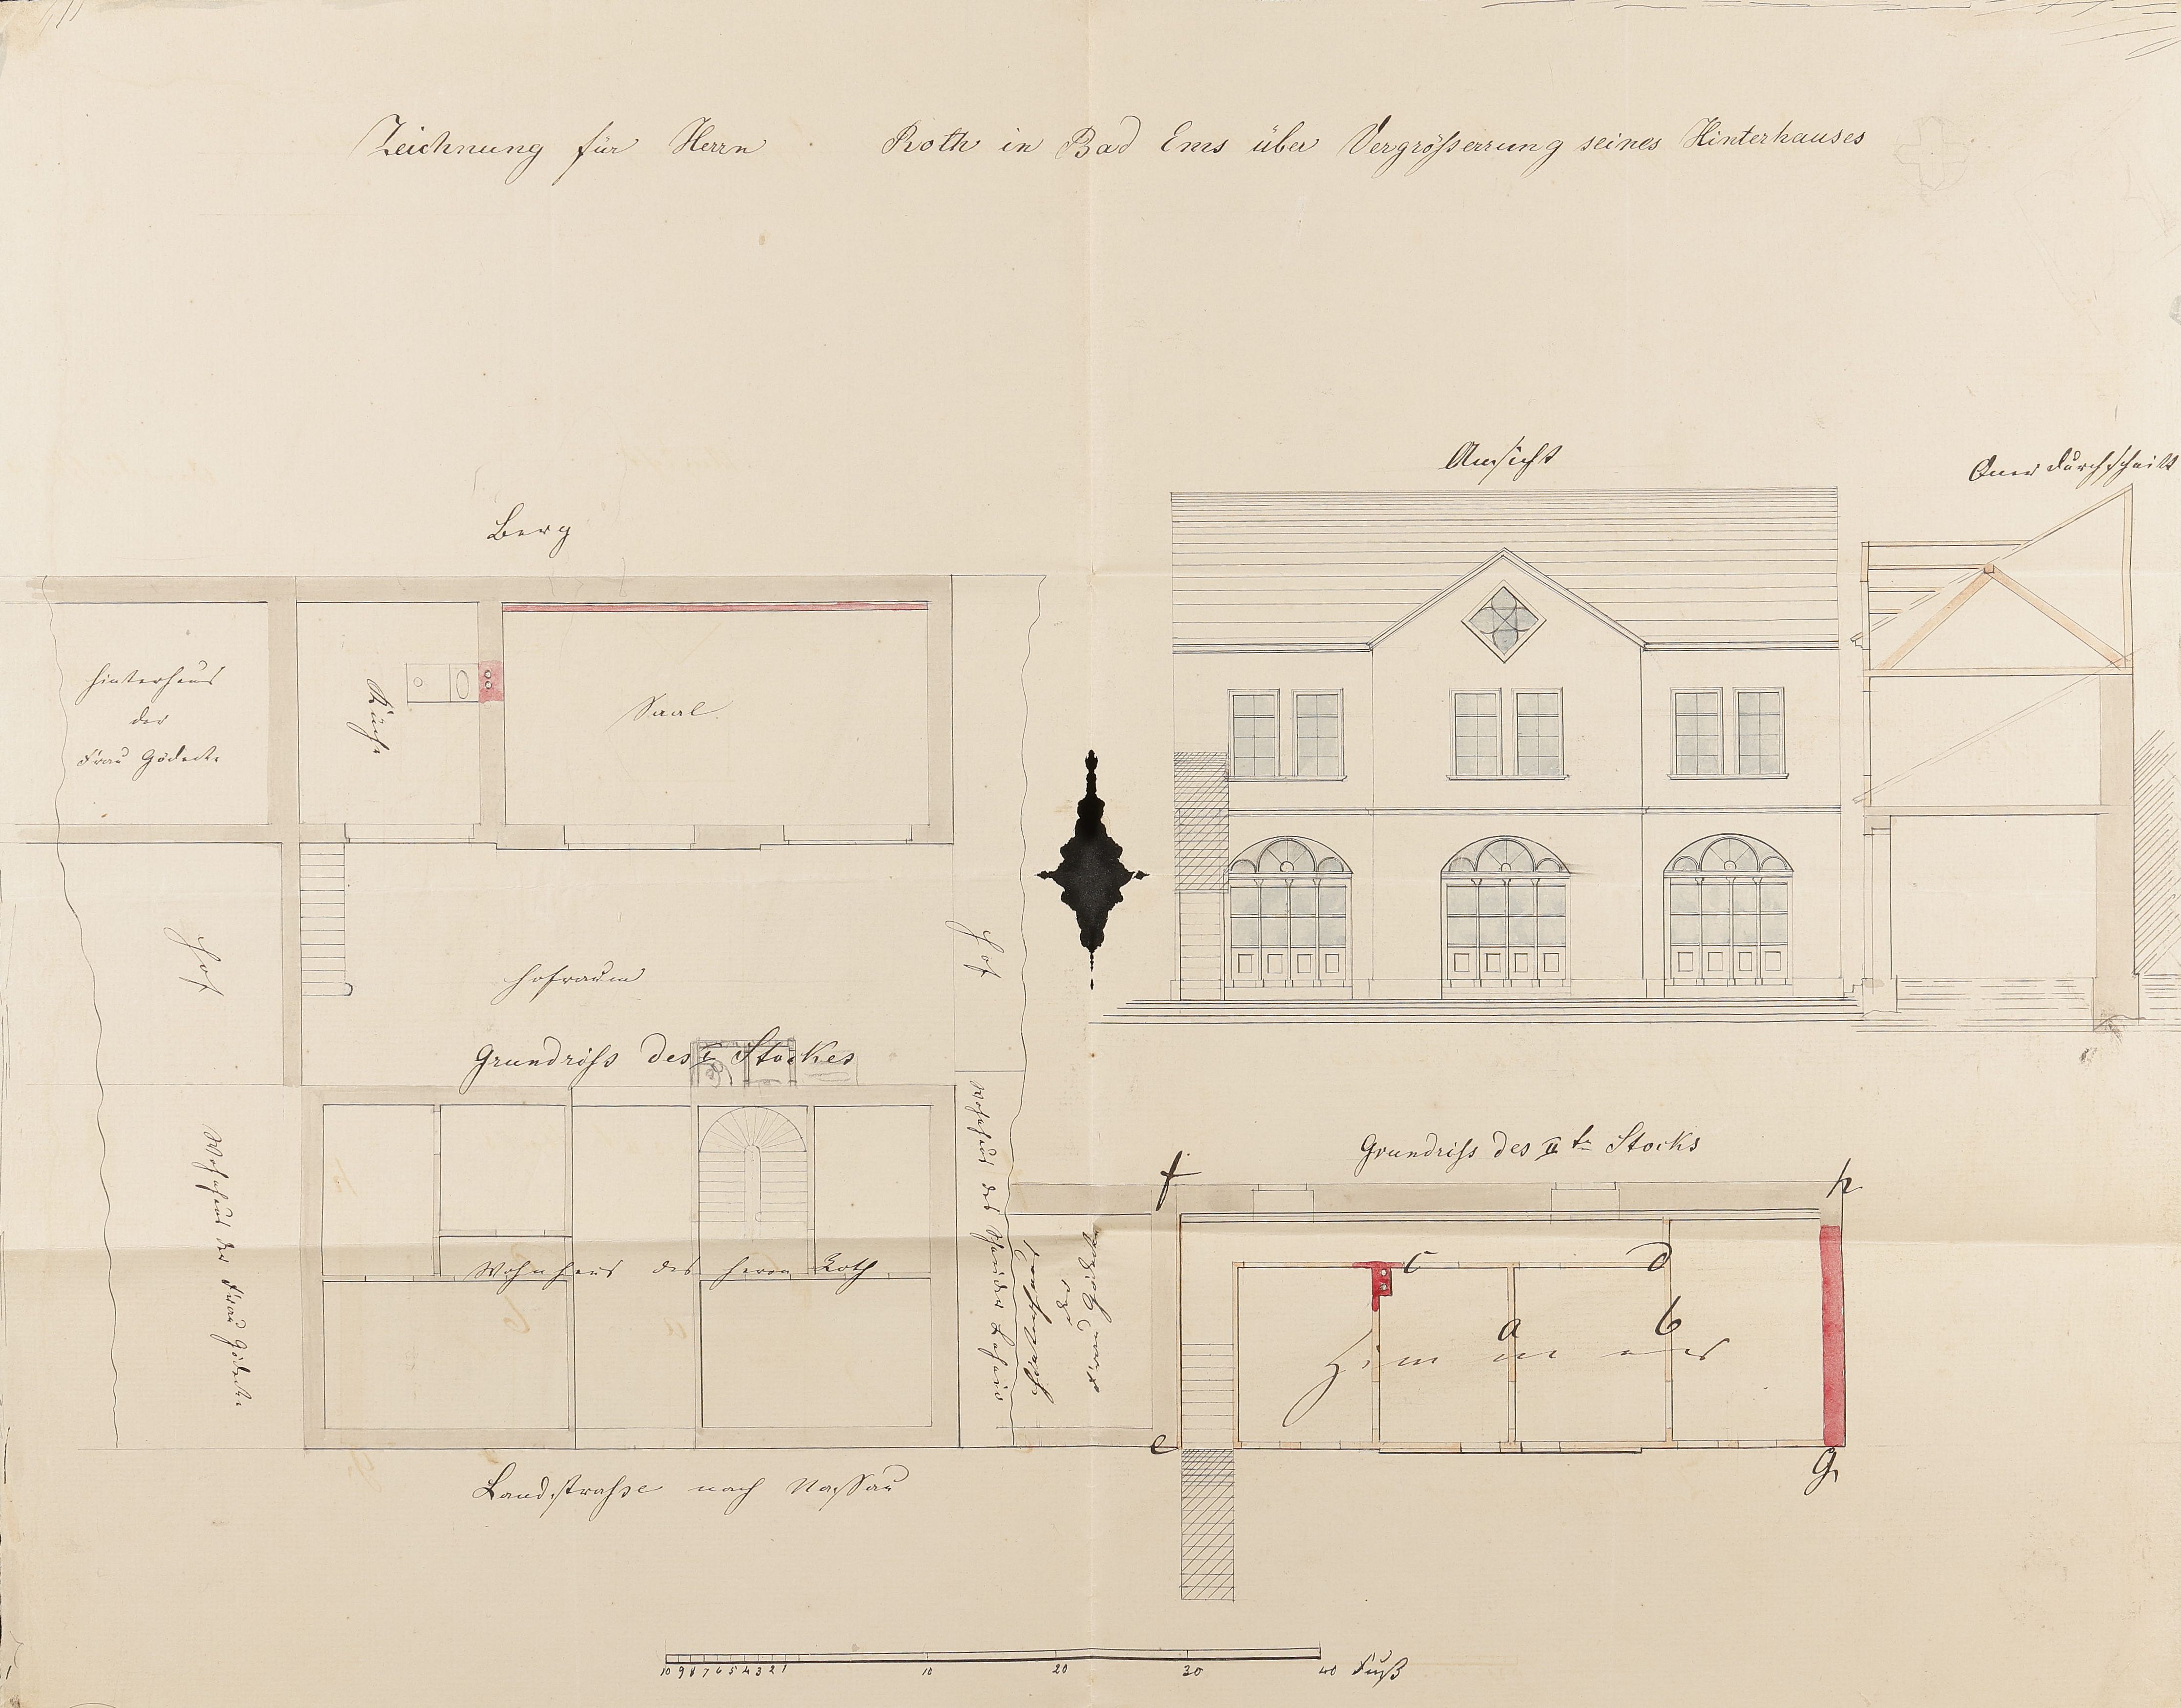 Zeichnung für Herrn Roth in Bad Ems über Vergrößerrung seines Hinterhauses
Ansicht
Quer durchschnitt
Berg
Hinterhaus
der
Frau Gödecke
Küche
Saal.
Hof
Hofraum
Hof
Grundriss des I Stockes
Wohnhaus der Frau Gödecke
Wohnhaus des Herrn Roth
Wohnhaus des
Landstrasse nach Nassau
Grundriss des II tn Stocks
f
h
Hinterhaus
der
Frau Gödecke
c
d
a
b
Zimmer
e
g
10 9 8 7 6 5 4 3 2 1 10 20 30 40 Fuß